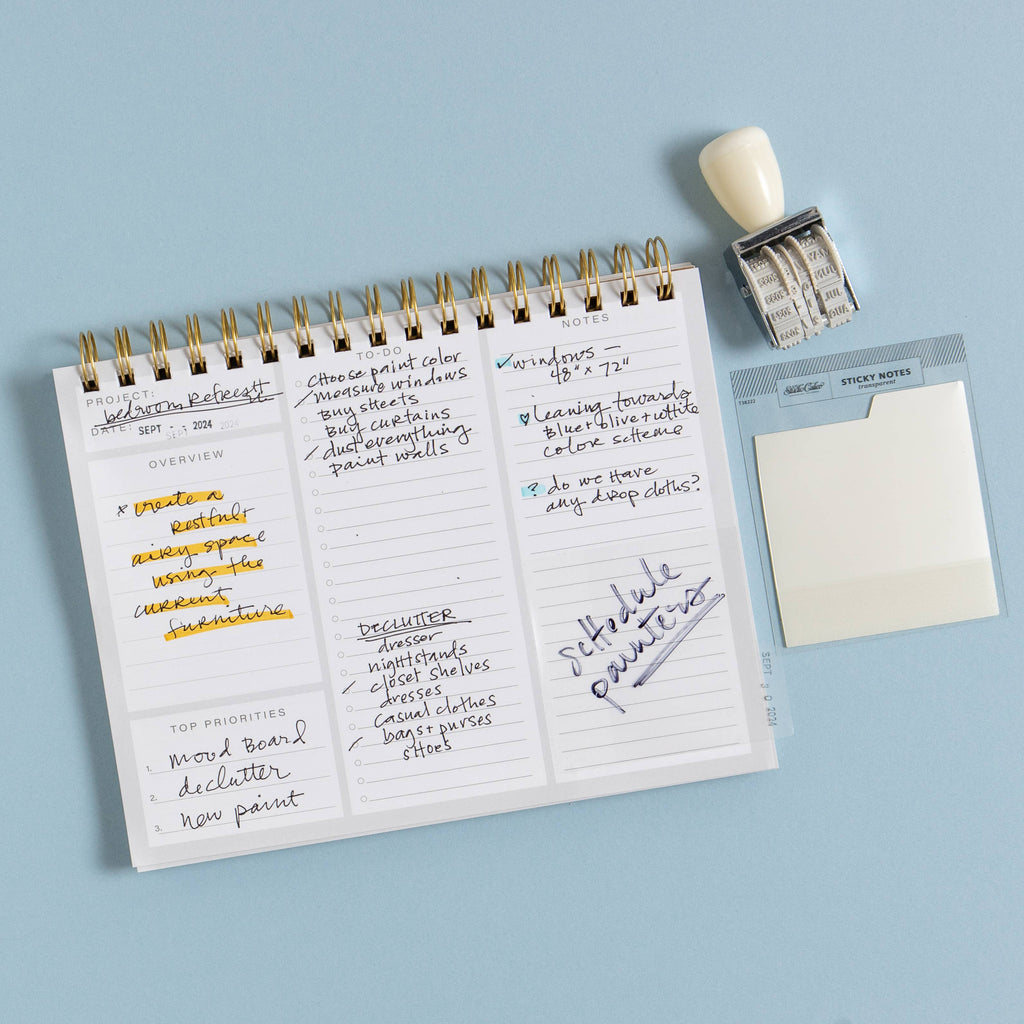 PROJECT:
bedroom Refresh
DATE: SEPT - - 2024
SEPT 2024
OVERVIEW
* create a
restful +
airy space
using the
current
furniture
TOP PRIORITIES
1. mood Board
2. declutter
3. new paint
TO-DO
choose paint color
measure windows
Buy sheets
Buy curtains
dust everything
paint walls
DECLUTTER
dresser
nightstands
closet shelves
dresses
casual clothes
bags + purses
shoes
NOTES
✓ windows –
48" x 72"
♡ leaning towards
Blue + olive + white
color scheme
? do we have
any drop cloths?
schedule
painters
SEPT 3 0 2024
T38222
STICKY NOTES
transparent
JUL